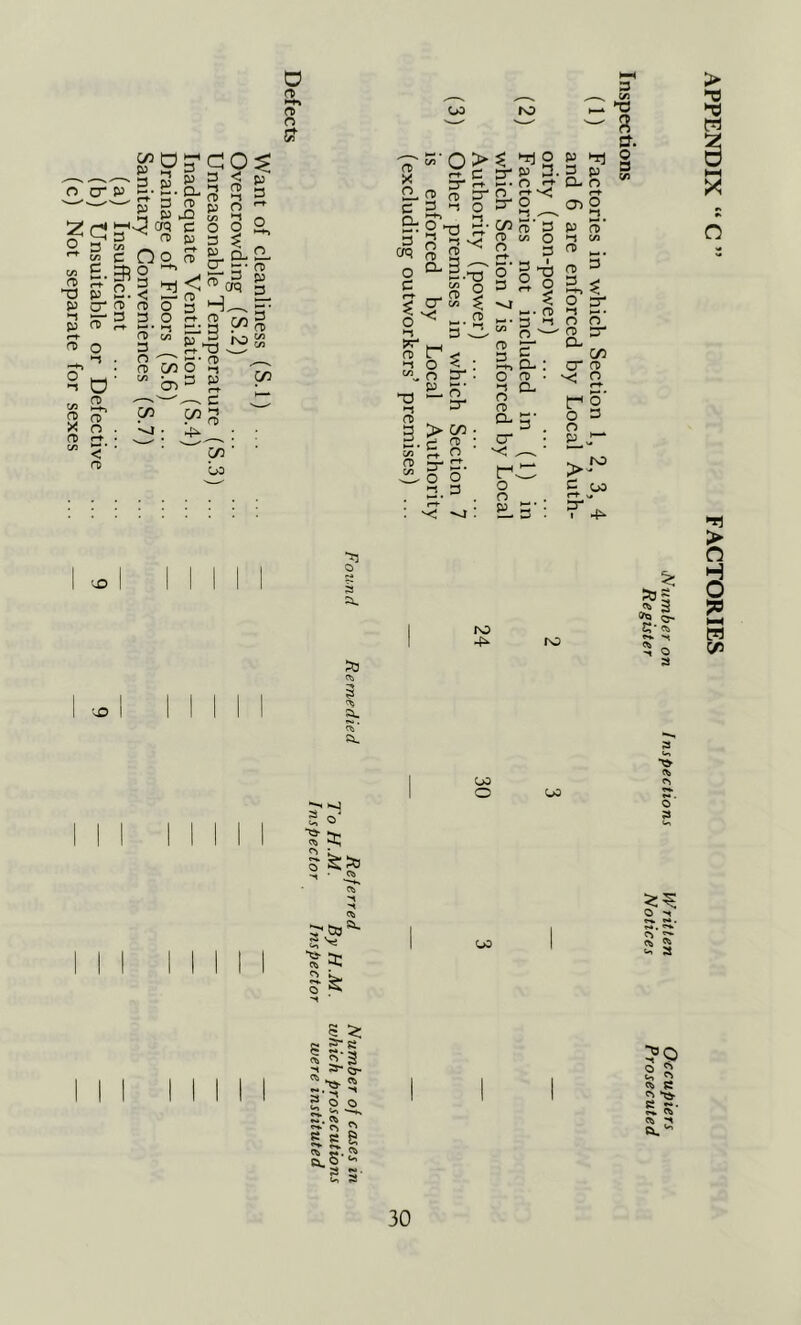 APPENDIX “C”
FACTORIES
Inspections
Number on Register
Inspections
Written Notices
Occupiers Prosecuted
(1) Factories in which Section 1, 2, 3, 4
and 6 are enforced by Local Auth-
ority (non-power) ... ... 2 3 — —
(2) Factories not included in (1) in
which Section 7 is enforced by Local
Authority (power) ... ... 24 30 3 —
(3) Other premises in which Section 7
is enforced by Local Authority
(excluding outworkers’ premises) ... — — — —
Defects
Found
Remedied
Referred
To H.M. Inspector
By H.M. Inspector
Number of cases in
which prosecutions
were instituted
Want of cleanliness (S.1) ... ... — — — — —
Overcrowding (S.2) ... ... — — — — —
Unreasonable Temperature (S.3) ... — — — — —
Inadequate Ventilation (S.4) ... — — — — —
Drainage of Floors (S.6) ... ... — — — — —
Sanitary Conveniences (S.7)
(a) Insufficient ... ... — — — — —
(b) Unsuitable or Defective ... 9 9 — — —
(c) Not separate for sexes ... — — — — —
30